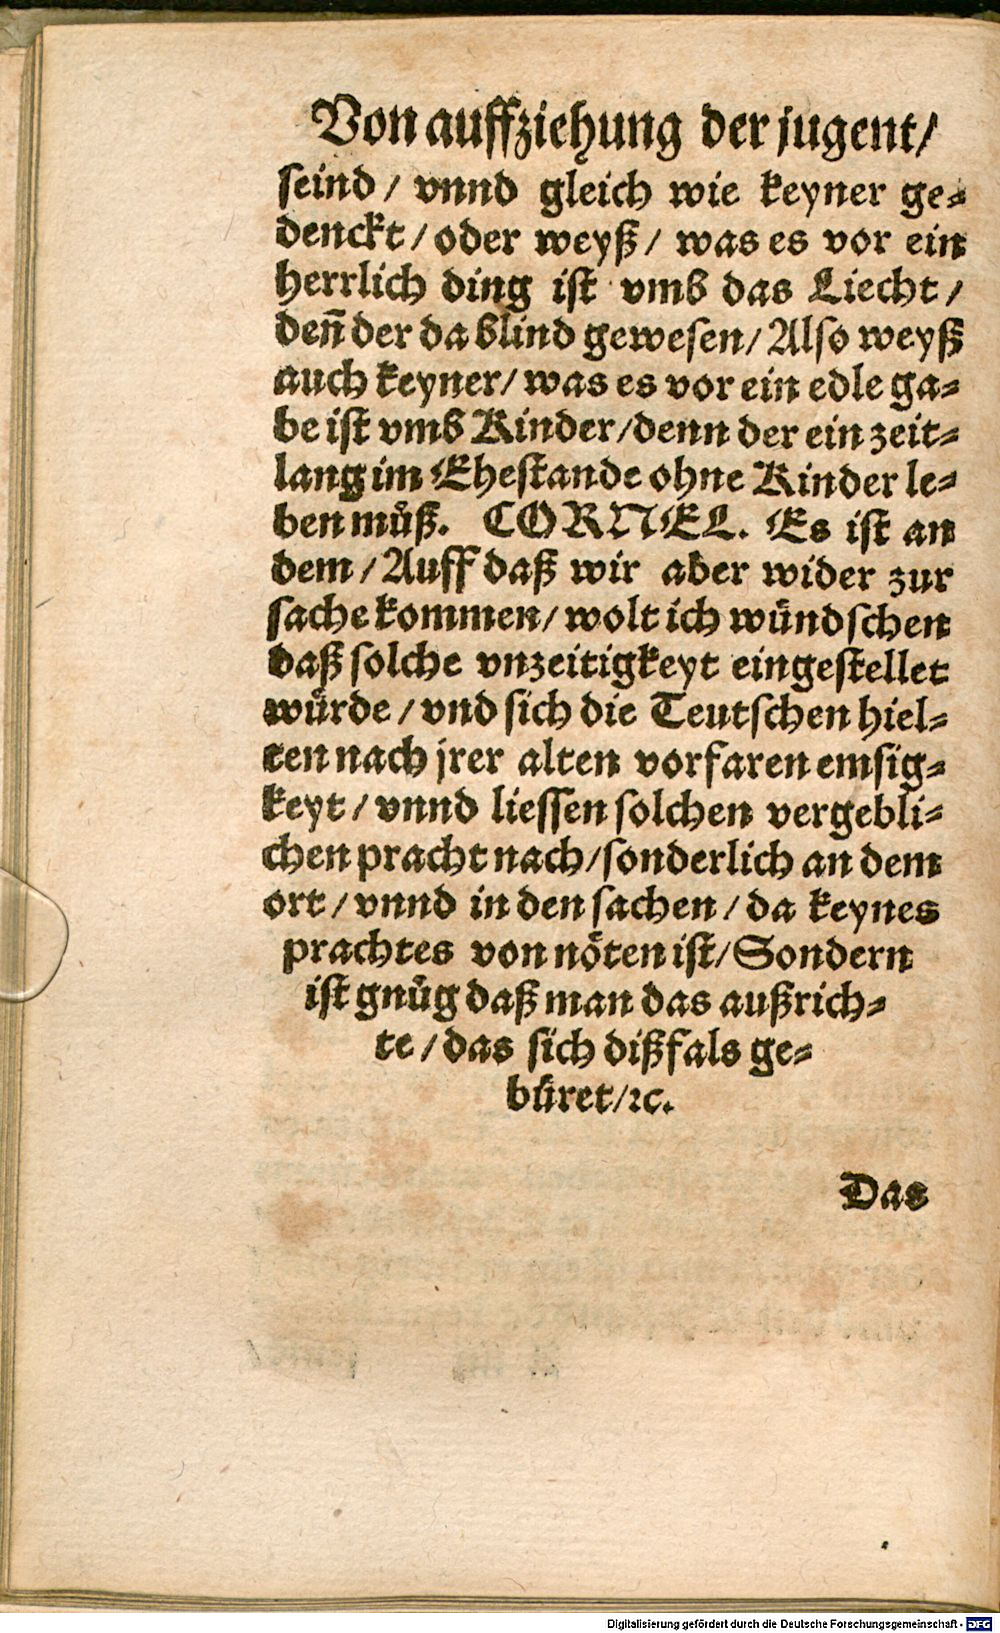 Von auffziehung der jugent/
seind/ vnnd gleich wie keyner ge⸗
denckt/ oder weyß/ was es vor ein
herrlich ding ist vmb das Liecht/
deñ der da blind gewesen/ Also weyß
auch keyner/ was es vor ein edle ga⸗
be ist vmb Kinder/ denn der ein zeit⸗
lang im Ehestande ohne Kinder le⸗
ben muͦß. CORNEL. Es ist an
dem/ Auff daß wir aber wider zur
sache kommen/ wolt ich wuͤndschen
daß solche vnzeitigkeyt eingestellet
wuͤrde/ vnd sich die Teutschen hiel⸗
ten nach jrer alten vorfaren emsig⸗
keyt/ vnnd liessen solchen vergebli⸗
chen pracht nach/ sonderlich an dem
ort/ vnnd in den sachen/ da keynes
prachtes von noͤten ist/ Sondern
ist gnuͦg daß man das außrich⸗
te/ das sich dißfals ge⸗
buͤret/ ꝛc.
Das
Digitalisierung gefördert durch die Deutsche Forschungsgemeinschaft - DFG